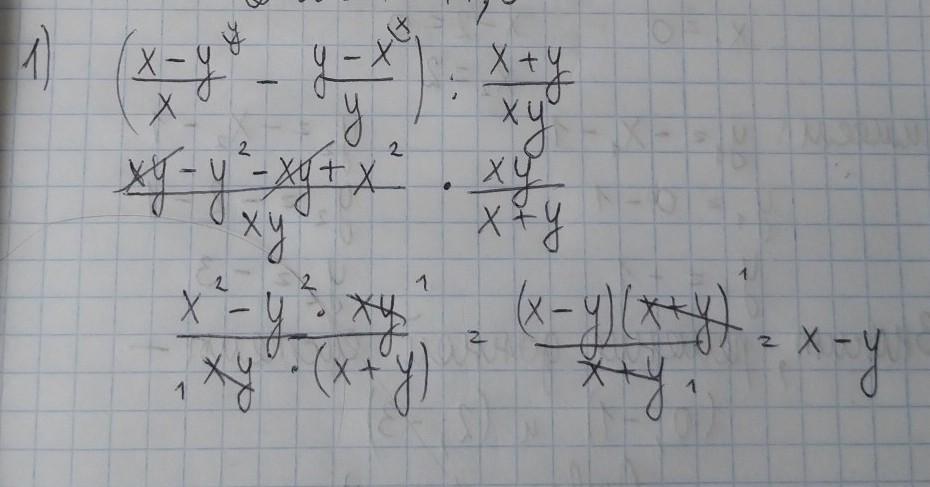 1) ((x − y)^y / x − (y − x)^(x / y) : (x + y) / (xy)
(xy − y² − xy + x²) / (xy) · (xy) / (x + y)
(x² − y² · xy ¹) / (₁ xy · (x + y)) = ((x − y)(x + y) ¹) / (x + y ₁) = x − y